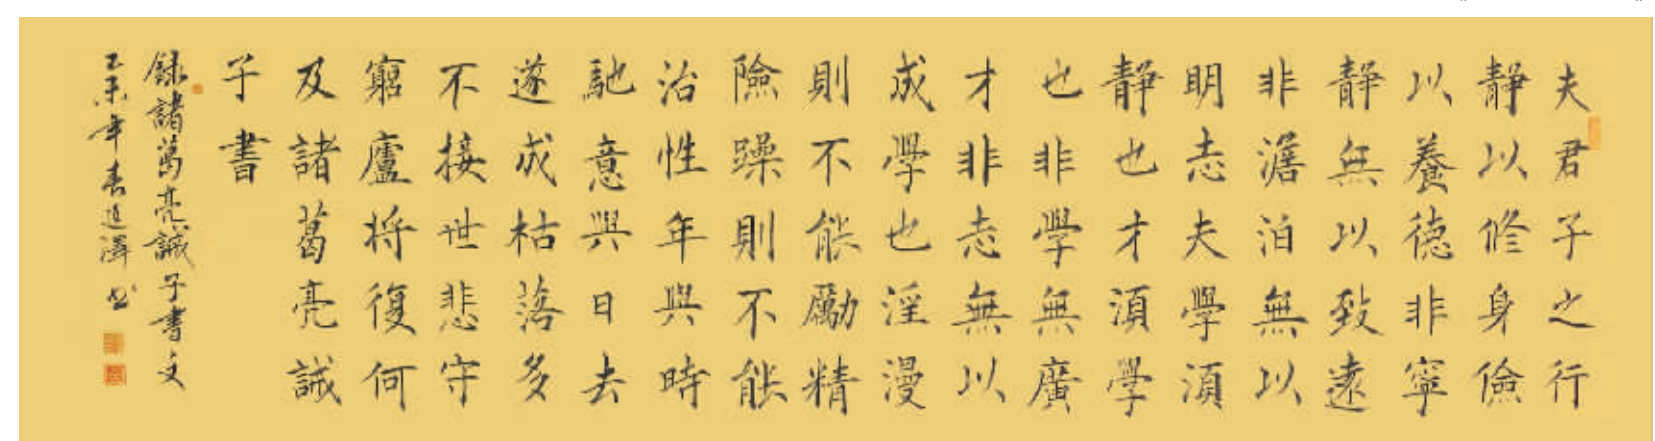 夫君子之行
静以修身儉
以養德非寧
静無以致遠
非澹泊無以
明志夫學湏
静也才湏學
也非學無廣
才非志無以
成學也淫漫
則不能勵精
險躁則不能
治性年與時
馳意與日去
遂成枯落多
不接世悲守
窮廬将復何
及諸葛亮誡
子書
録諸葛亮誡子書文
乙未年春